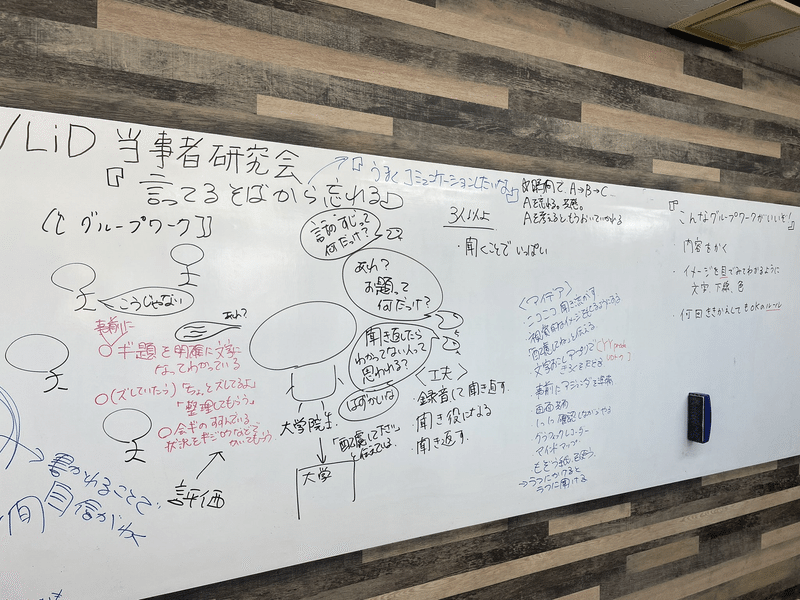 /LiD 当事者研究会
『言ってるそばから忘れる』
『うまくコミュニケーションしたいな』
[[グループワーク]]
こうじゃない
あれ?
事前に
○ギ題を明確に文字に
なってわかっている
○(ズレていたら)「ちょっとズレてるよ」
「整理してもらう」
○会ギのすすんでいる
状況をギジロクなどで
かいてもらう。
評価
書かれることで、
自信が
話のすじって
何だっけ?
あれ?
お題って
何だっけ?
聞き直したら
わかってない人って
思われる?
はずかしいな
大学院生
「配慮して下さい」
と伝えている
大学
3人以上
・聞くことでいっぱい
A→B→C
Aを忘れる。
Aを考えるとおいていかれる
〈工夫〉
・録音して聞き直す
・聞き役になる
・聞き返す
〈アイデア〉
・ニコニコ聞き流す
・視覚的イメージをしてもらう
・事前にアジェンダを準備
・画面共有
・1つ1つ確認しながらやる
・グラフィックレコーダー
・マインドマップ
・もぞう紙を使う。
『こんなグループワークがいいぞ!』
・内容をかく
・イメージを目でみてわかるように
文字 下線 色
・何回ききかえしてもOKのルール